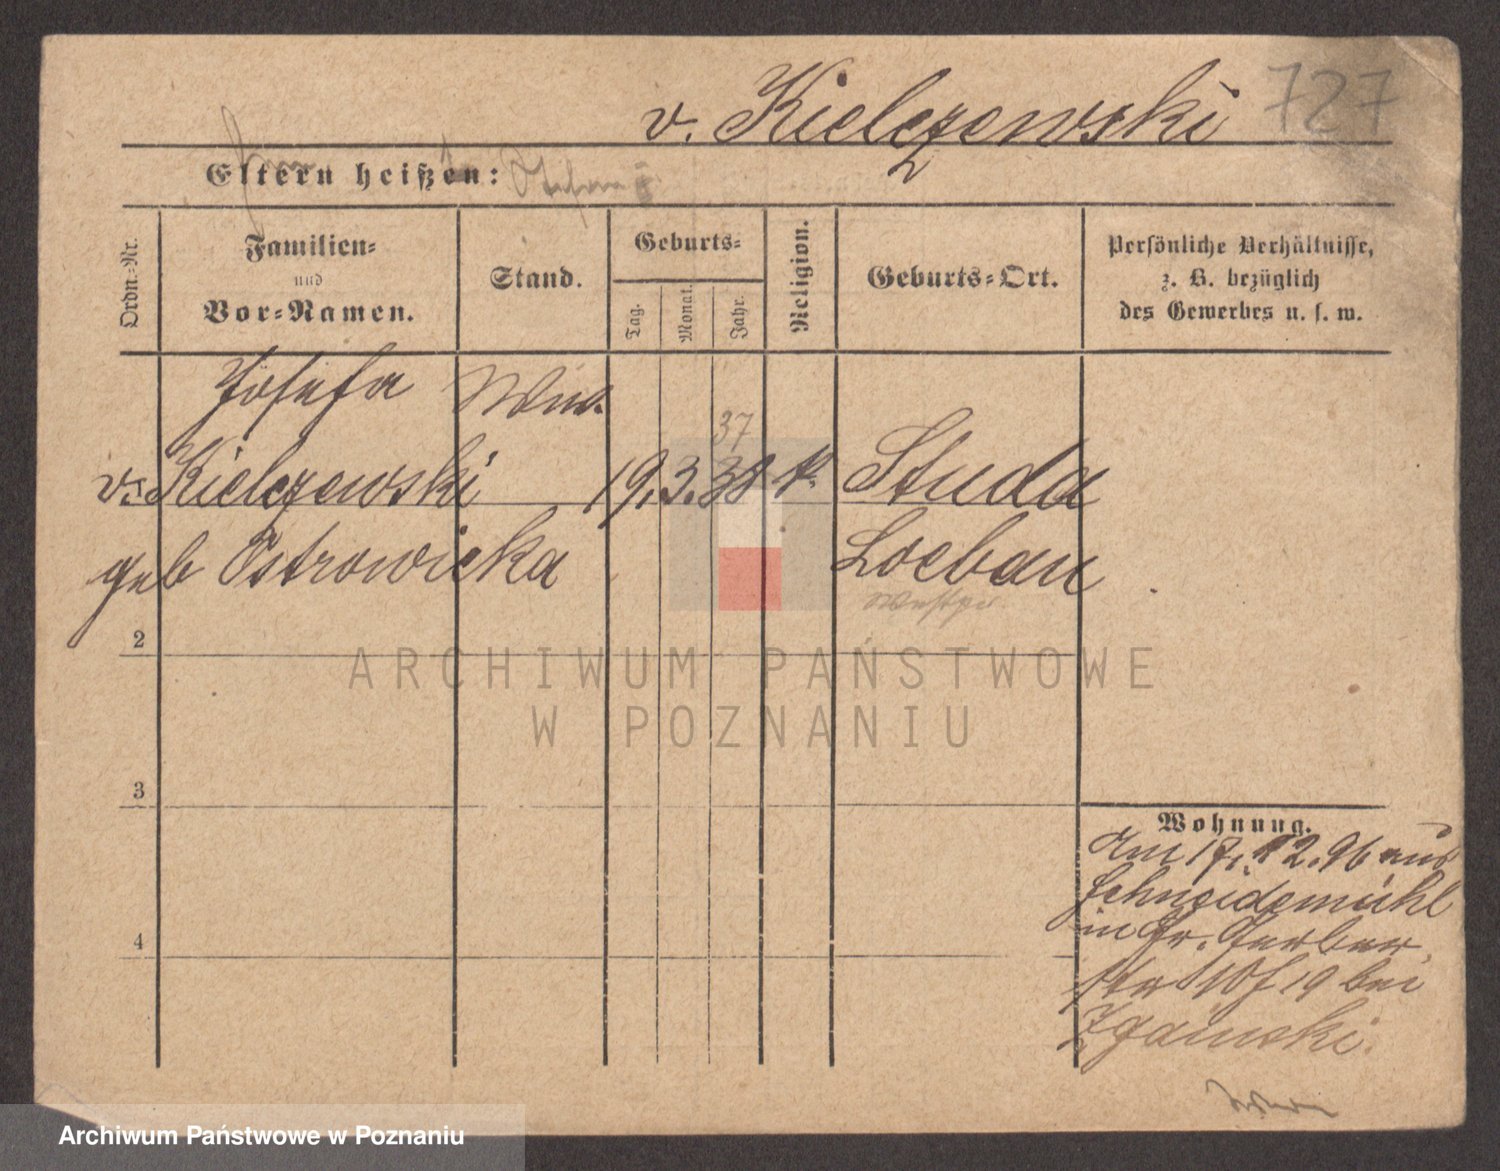 v. Kielczewski 727
Eltern heißen:
Ordn.-Nr.
Familien-
und
Vor-Namen.
Stand.
Geburts-
Tag.
Monat.
Jahr.
Religion.
Geburts-Ort.
Persönliche Verhältnisse,
z. B. bezüglich
des Gewerbes u. s. w.
Josefa Wwe.
37
v. Kielczewski 19. 3. 38 k. Studa
geb Ostrowicka Loebau
Westpr
2
3
4
Wohnung.
Am 17. 12. 96 aus
Schneidemühl
in Gr. Gerber
str 19 bei
Zgainski.
ARCHIWUM PAŃSTWOWE
W POZNANIU
Archiwum Państwowe w Poznaniu